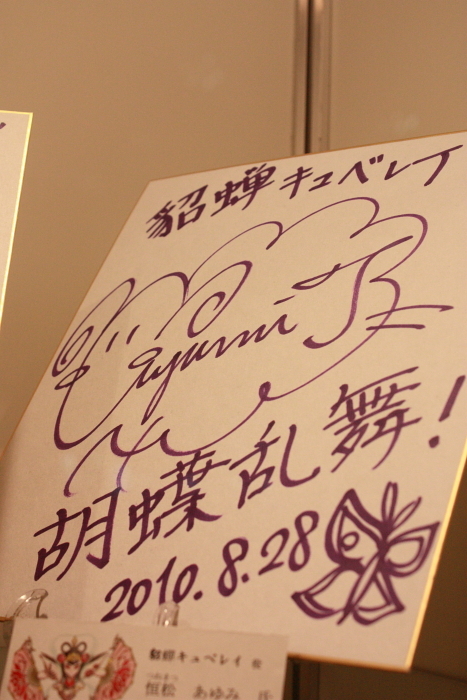 貂蝉キュベレイ
Ayumi
胡蝶乱舞!
2010.8.28
貂蝉キュベレイ 役
つねまつ
恒松 あゆみ 氏